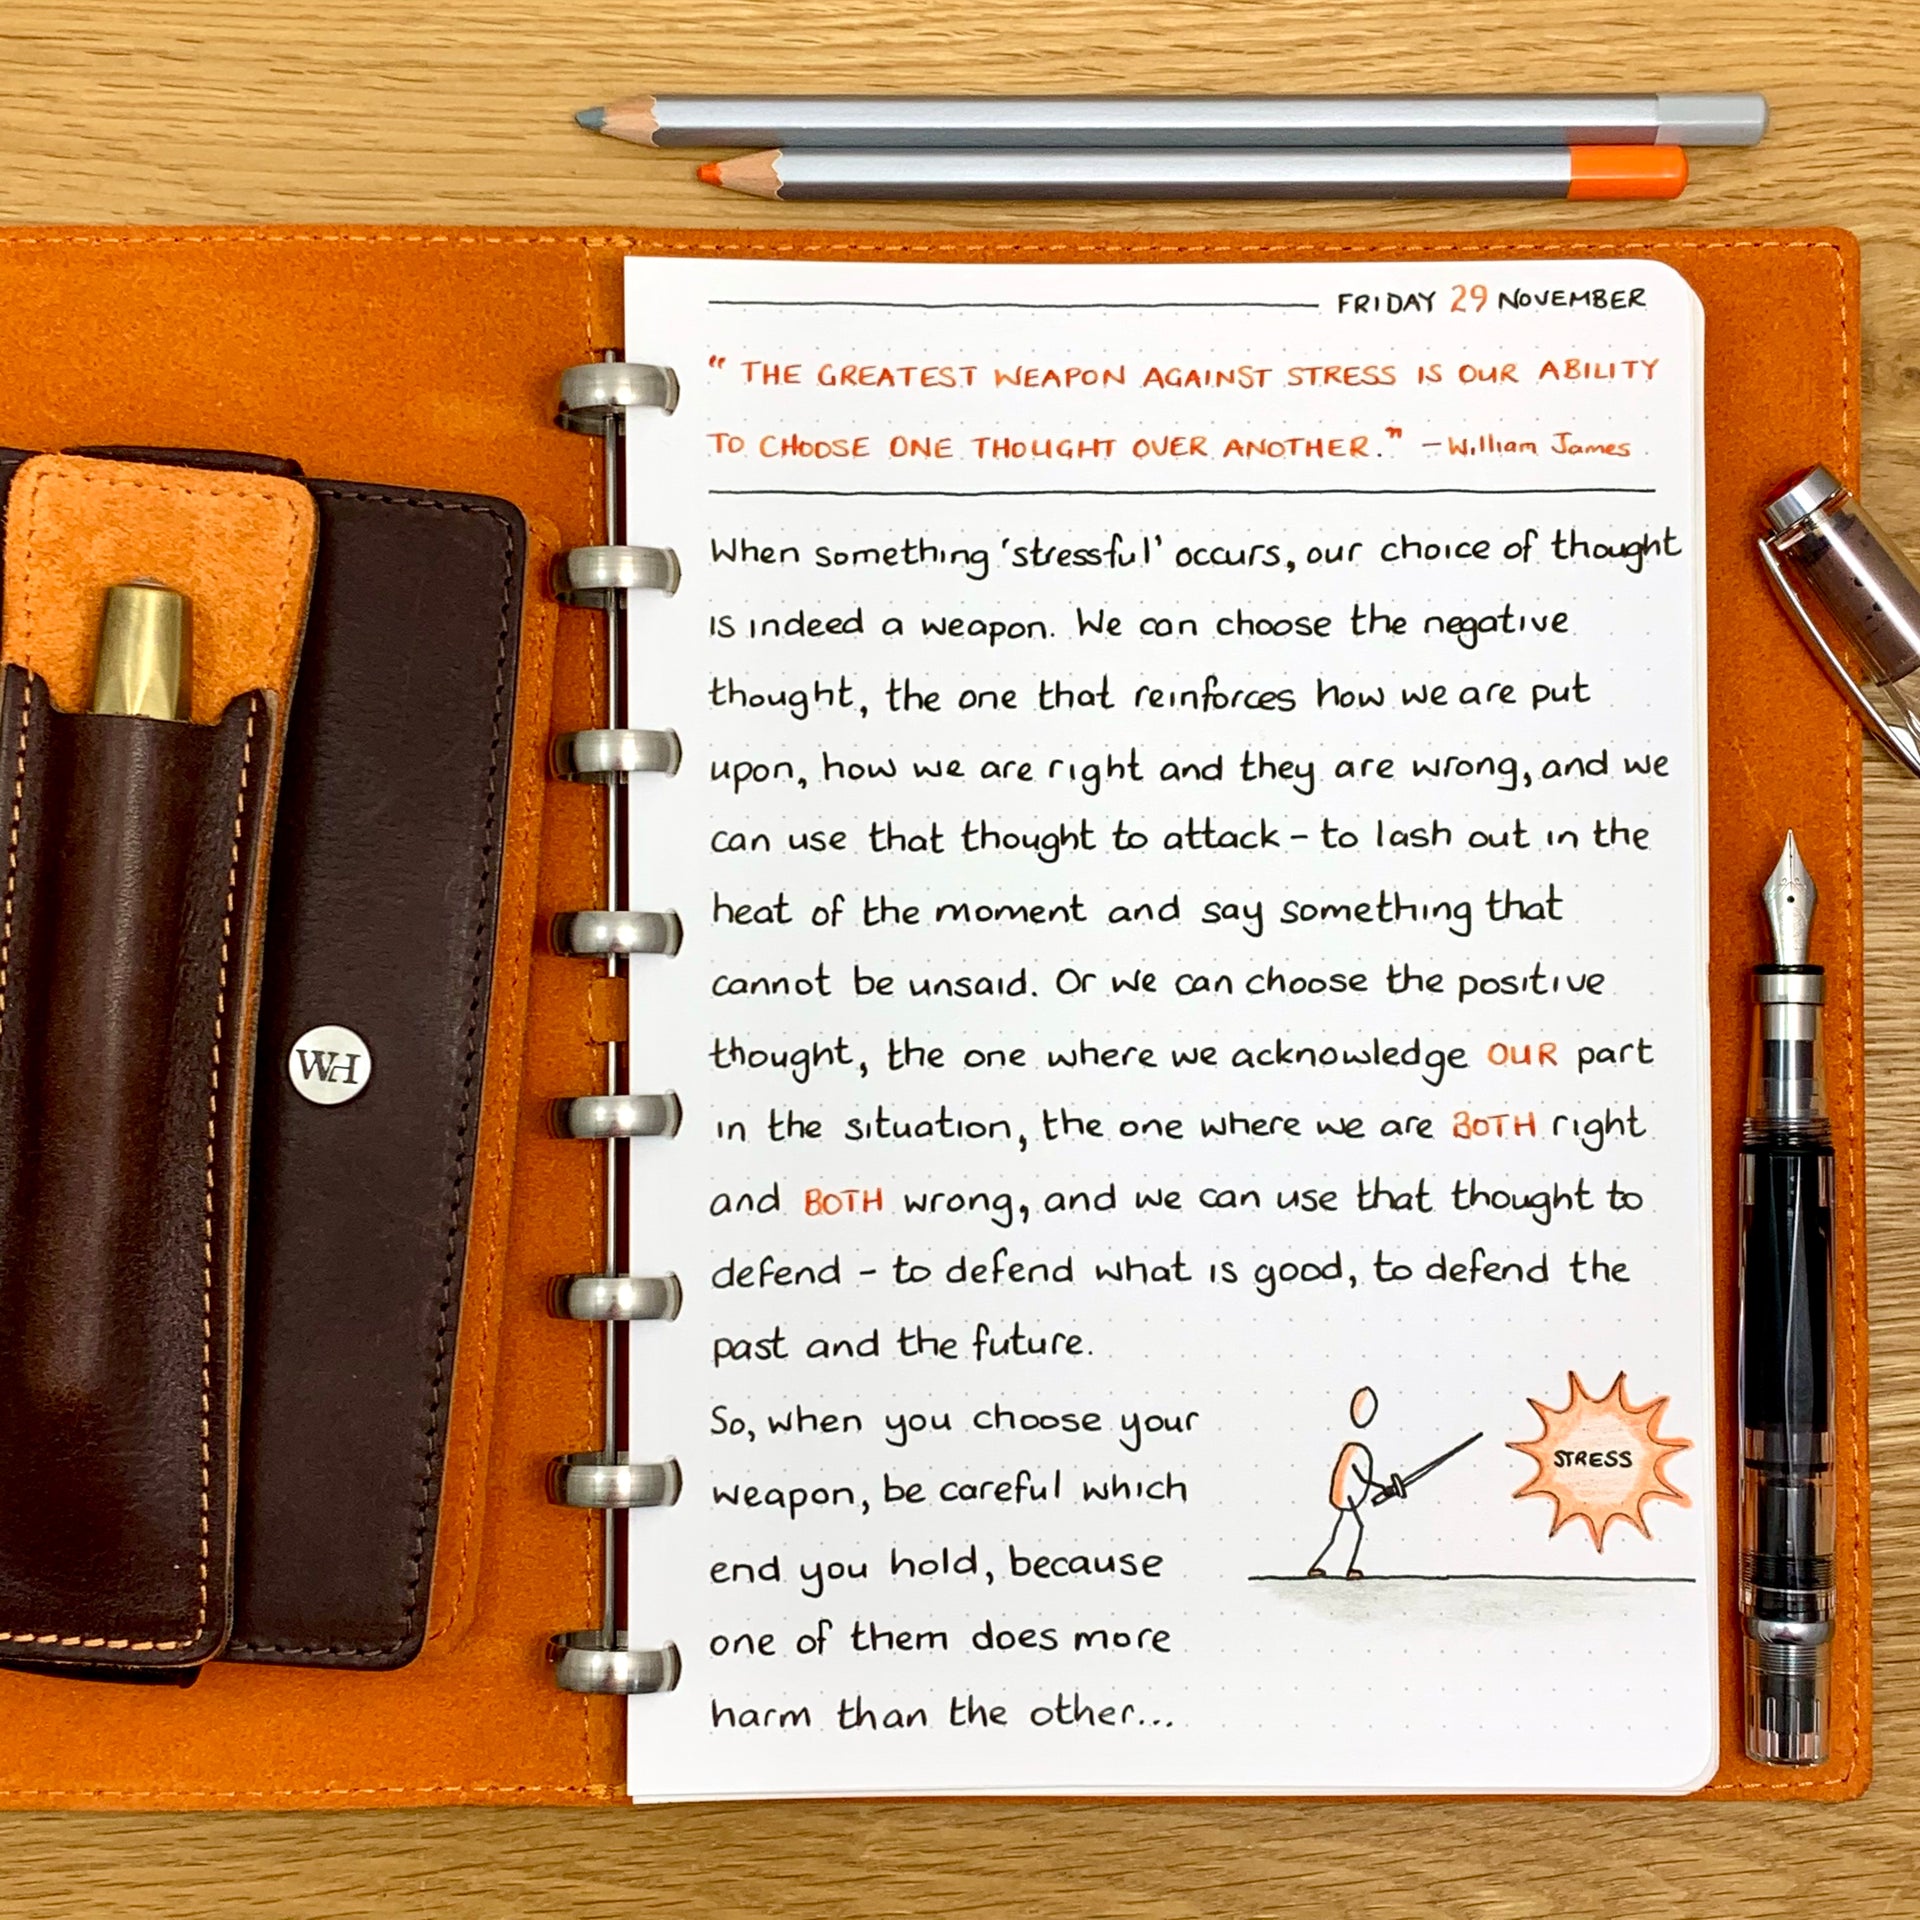 FRIDAY 29 NOVEMBER
“ THE GREATEST WEAPON AGAINST STRESS IS OUR ABILITY
TO CHOOSE ONE THOUGHT OVER ANOTHER.” – William James
When something ‘stressful’ occurs, our choice of thought
is indeed a weapon. We can choose the negative
thought, the one that reinforces how we are put
upon, how we are right and they are wrong, and we
can use that thought to attack – to lash out in the
heat of the moment and say something that
cannot be unsaid. Or we can choose the positive
thought, the one where we acknowledge OUR part
in the situation, the one where we are BOTH right
and BOTH wrong, and we can use that thought to
defend – to defend what is good, to defend the
past and the future.
So, when you choose your
weapon, be careful which
end you hold, because
one of them does more
harm than the other...
STRESS
WH